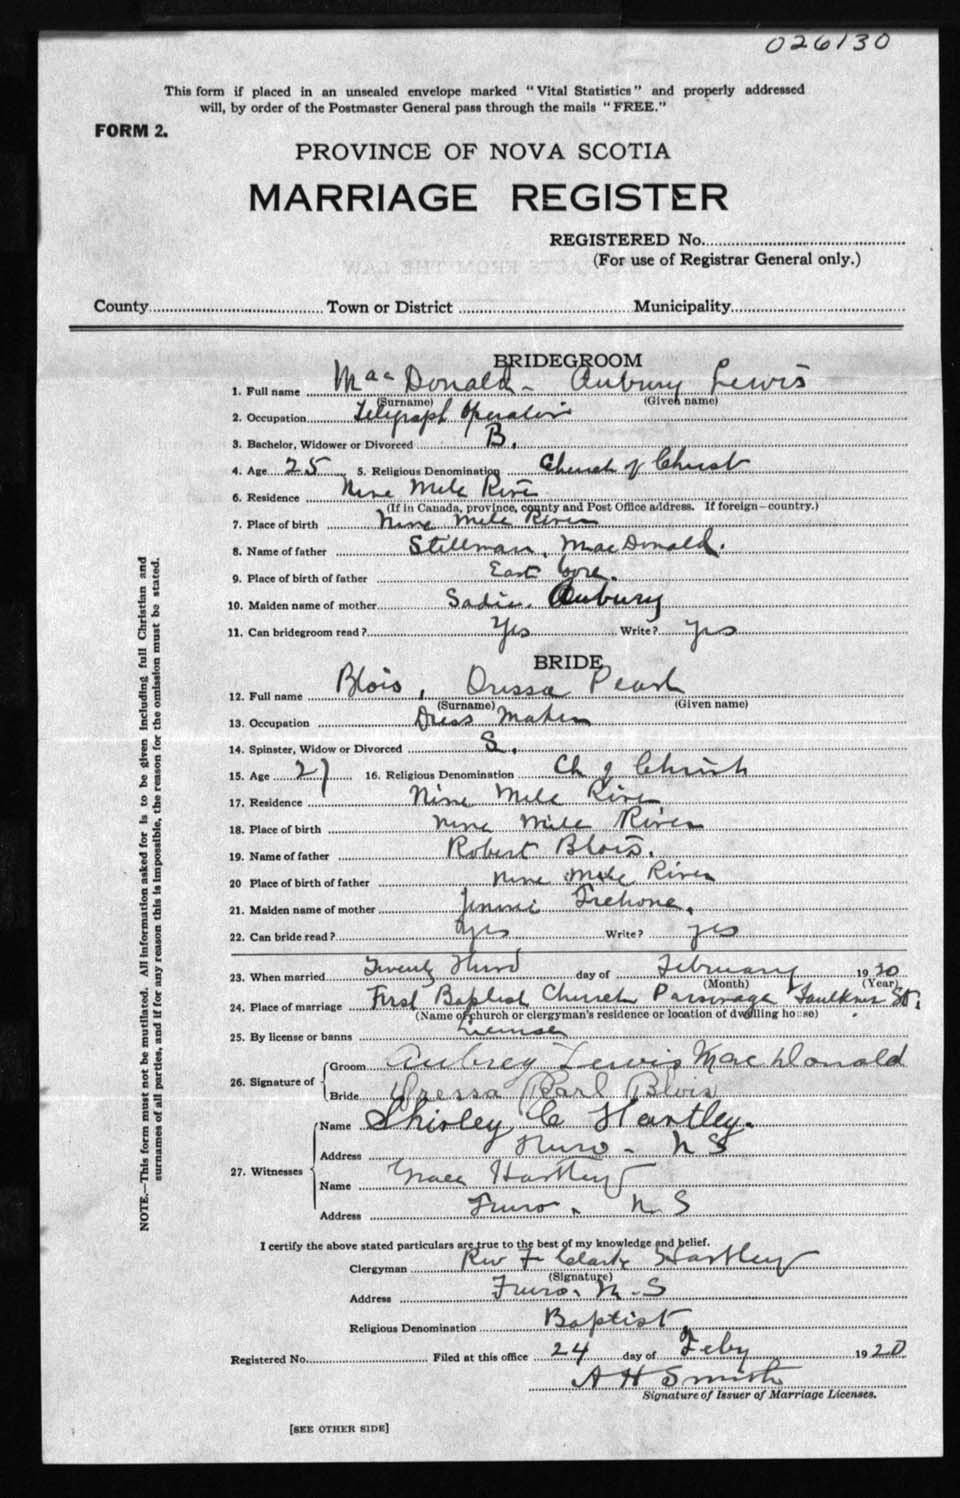 026130
This form if placed in an unsealed envelope marked "Vital Statistics" and properly addressed
will, by order of the Postmaster General pass through the mails "FREE."
FORM 2.
PROVINCE OF NOVA SCOTIA
MARRIAGE REGISTER
REGISTERED No.
(For use of Registrar General only.)
County Town or District Municipality
BRIDEGROOM
1. Full name MacDonald - Aubury Lewis
(Surname) (Given name)
2. Occupation Telegraph Operator
3. Bachelor, Widower or Divorced B.
4. Age 25 5. Religious Denomination Church of Christ
6. Residence Nine Mile River
(If in Canada, province, county and Post Office address. If foreign—country.)
7. Place of birth Nine Mile River
8. Name of father Stillman, MacDonald.
9. Place of birth of father East Gore.
10. Maiden name of mother Sadie. Aubury
11. Can bridegroom read? Yes Write? Yes
BRIDE
12. Full name Blois, Oressa Pearl
(Surname) (Given name)
13. Occupation Dress Maker
14. Spinster, Widow or Divorced S.
15. Age 27 16. Religious Denomination Ch of Christ
17. Residence Nine Mile River
18. Place of birth Nine Mile River
19. Name of father Robert Blois.
20 Place of birth of father Nine Mile River
21. Maiden name of mother Jennie
22. Can bride read? Yes Write? Yes
23. When married Twenty Third day of February 19 20
(Month) (Year)
24. Place of marriage First Baptist Church Parsonage Faulkner St.
(Name of church or clergyman's residence or location of dwelling house)
25. By license or banns License
26. Signature of Groom Aubrey Lewis MacDonald
Bride Oressa Pearl Blois
27. Witnesses Name Shirley C Hartley.
Address Truro - N S
Name Grace Hartley
Address Truro. N. S
I certify the above stated particulars are true to the best of my knowledge and belief.
Clergyman Rev F Clarke Hartley
(Signature)
Address Truro. N. S
Religious Denomination Baptist
Registered No. Filed at this office 24 day of Feby 19 20
A H Smith
Signature of Issuer of Marriage Licenses.
[SEE OTHER SIDE]
NOTE.—This form must not be mutilated. All information asked for is to be given including full Christian and
surnames of all parties, and if for any reason this is impossible, the reason for the omission must be stated.